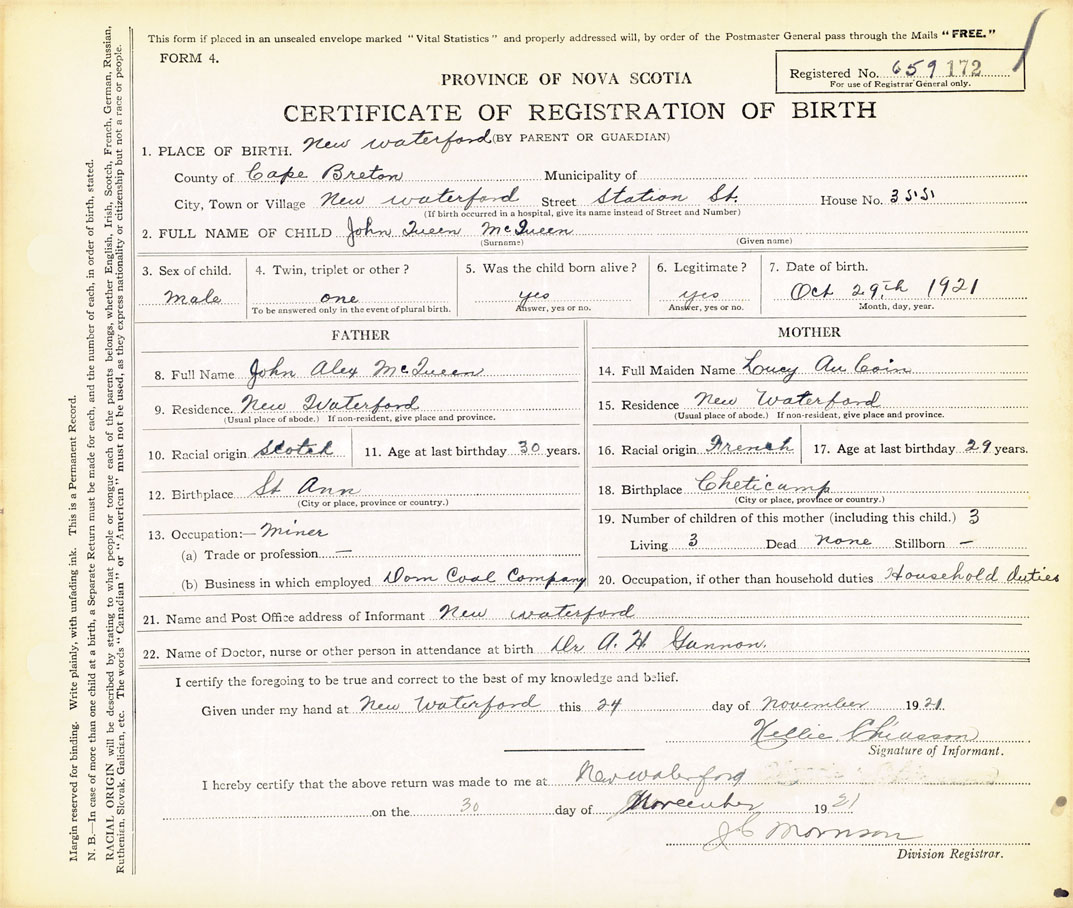 This form if placed in an unsealed envelope marked "Vital Statistics" and properly addressed will, by order of the Postmaster General pass through the Mails "FREE."
FORM 4.
PROVINCE OF NOVA SCOTIA
Registered No. 659 172
For use of Registrar General only.
CERTIFICATE OF REGISTRATION OF BIRTH
(BY PARENT OR GUARDIAN)
1. PLACE OF BIRTH. New Waterford
County of Cape Breton Municipality of
City, Town or Village New Waterford Street Station St. House No.
(If birth occurred in a hospital, give its name instead of Street and Number)
2. FULL NAME OF CHILD John Queen McQueen
(Surname) (Given name)
3. Sex of child. 4. Twin, triplet or other? 5. Was the child born alive? 6. Legitimate? 7. Date of birth.
Male one yes yes Oct 29th 1921
To be answered only in the event of plural birth. Answer, yes or no. Answer, yes or no. Month, day, year.
FATHER
8. Full Name John Alex McQueen
9. Residence. New Waterford
(Usual place of abode.) If non-resident, give place and province.
10. Racial origin Scotch 11. Age at last birthday 30 years.
12. Birthplace St Ann
(City or place, province or country.)
13. Occupation:— Miner
(a) Trade or profession —
(b) Business in which employed Dom Coal Company
MOTHER
14. Full Maiden Name Lucy Au Coin
15. Residence New Waterford
(Usual place of abode.) If non-resident, give place and province.
16. Racial origin French 17. Age at last birthday 29 years.
18. Birthplace Cheticamp
(City or place, province or country.)
19. Number of children of this mother (including this child.) 3
Living 3 Dead none Stillborn —
20. Occupation, if other than household duties Household duties
21. Name and Post Office address of Informant New Waterford
22. Name of Doctor, nurse or other person in attendance at birth Dr A. H.
I certify the foregoing to be true and correct to the best of my knowledge and belief.
Given under my hand at New Waterford this 24 day of November 1921.
Nellie Chiasson
Signature of Informant.
I hereby certify that the above return was made to me at New Waterford
on the 30 day of November 1921
Morrison
Division Registrar.
Margin reserved for binding. Write plainly, with unfading ink. This is a Permanent Record.
N. B.—In case of more than one child at a birth, a Separate Return must be made for each, and the number of each, in order of birth, stated.
RACIAL ORIGIN will be described by stating to what people or tongue each of the parents belongs, whether English, Irish, Scotch, French, German, Russian,
Ruthenian, Slovak, Galician, etc. The words "Canadian" or "American" must not be used, as they express nationality or citizenship but not a race or people.